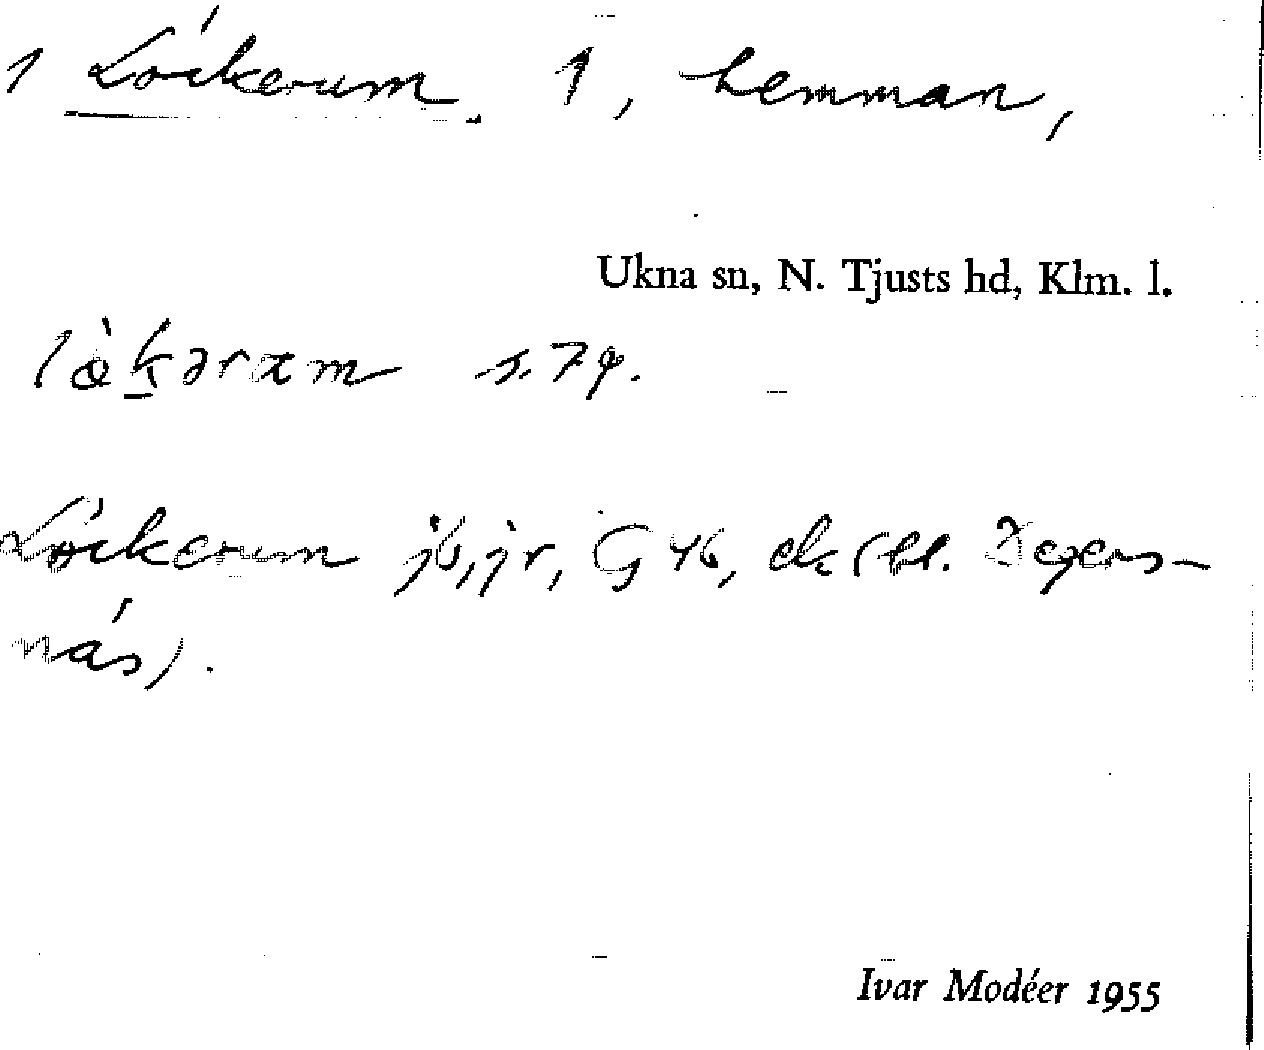 1 Löckerum. 1, hemman,
Ukna sn, N. Tjusts hd, Klm. l.
lö̀k̠ərɷm s. 79.
Löckerum jb, jr, G 46, ek (bl. Degers-
näs).
Ivar Modéer 1955